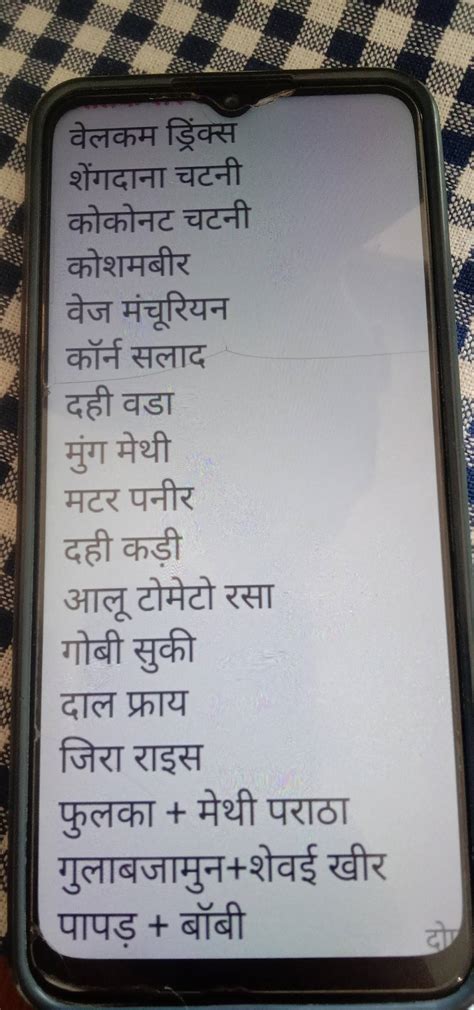 वेलकम ड्रिंक्स
शेंगदाना चटनी
कोकोनट चटनी
कोशमबीर
वेज मंचूरियन
कॉर्न सलाद
दही वडा
मुंग मेथी
मटर पनीर
दही कड़ी
आलू टोमेटो रसा
गोबी सुकी
दाल फ्राय
जिरा राइस
फुलका + मेथी पराठा
गुलाबजामुन+शेवई खीर
पापड़ + बॉबी